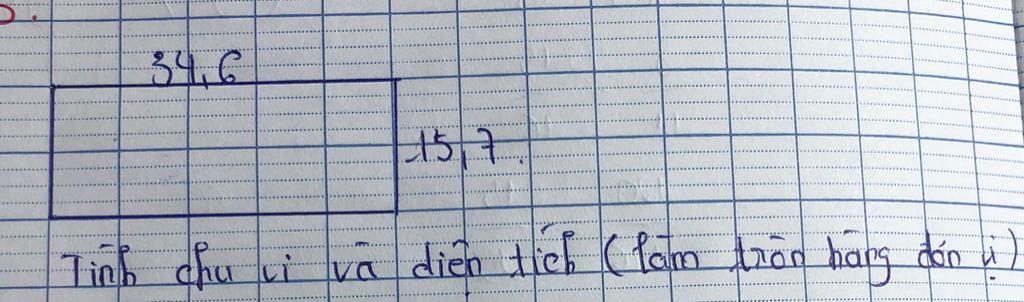 34,6
15,7
Tính chu vi và diện tích (làm tròn hàng đơn vị)